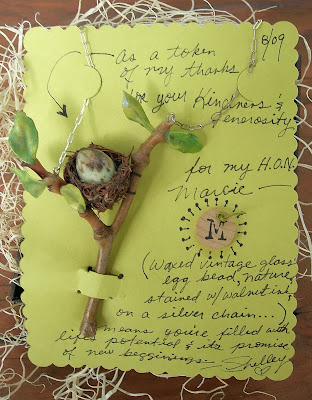 8/09
As a token
of my thanks
for your Kindness &
generosity
for my H.O.N.
Marcie —
M
(Waxed vintage glass
egg bead, nature,
stained w/ walnut ink,
on a silver chain...)
life means you're filled with
potential & its promise
of new beginnings —
Shelley